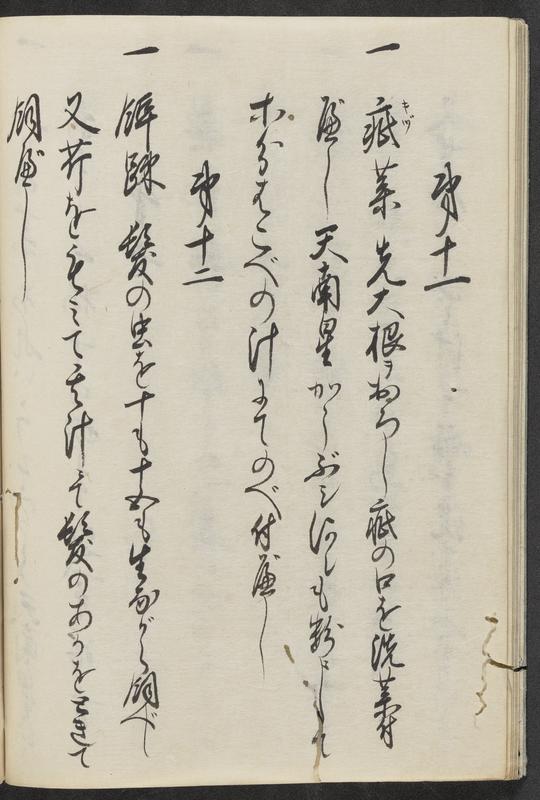 第十一
一 疵薬 先大根ヲおろし疵の口を洗薬付
べし天南星からぶしいづれも粉にして
はこべの汁にてのべ付べし
第十二
一 髪の虫を十も十五も生ながら飼べし
又芹をもみて其汁にて髪のあかをときて
飼べし